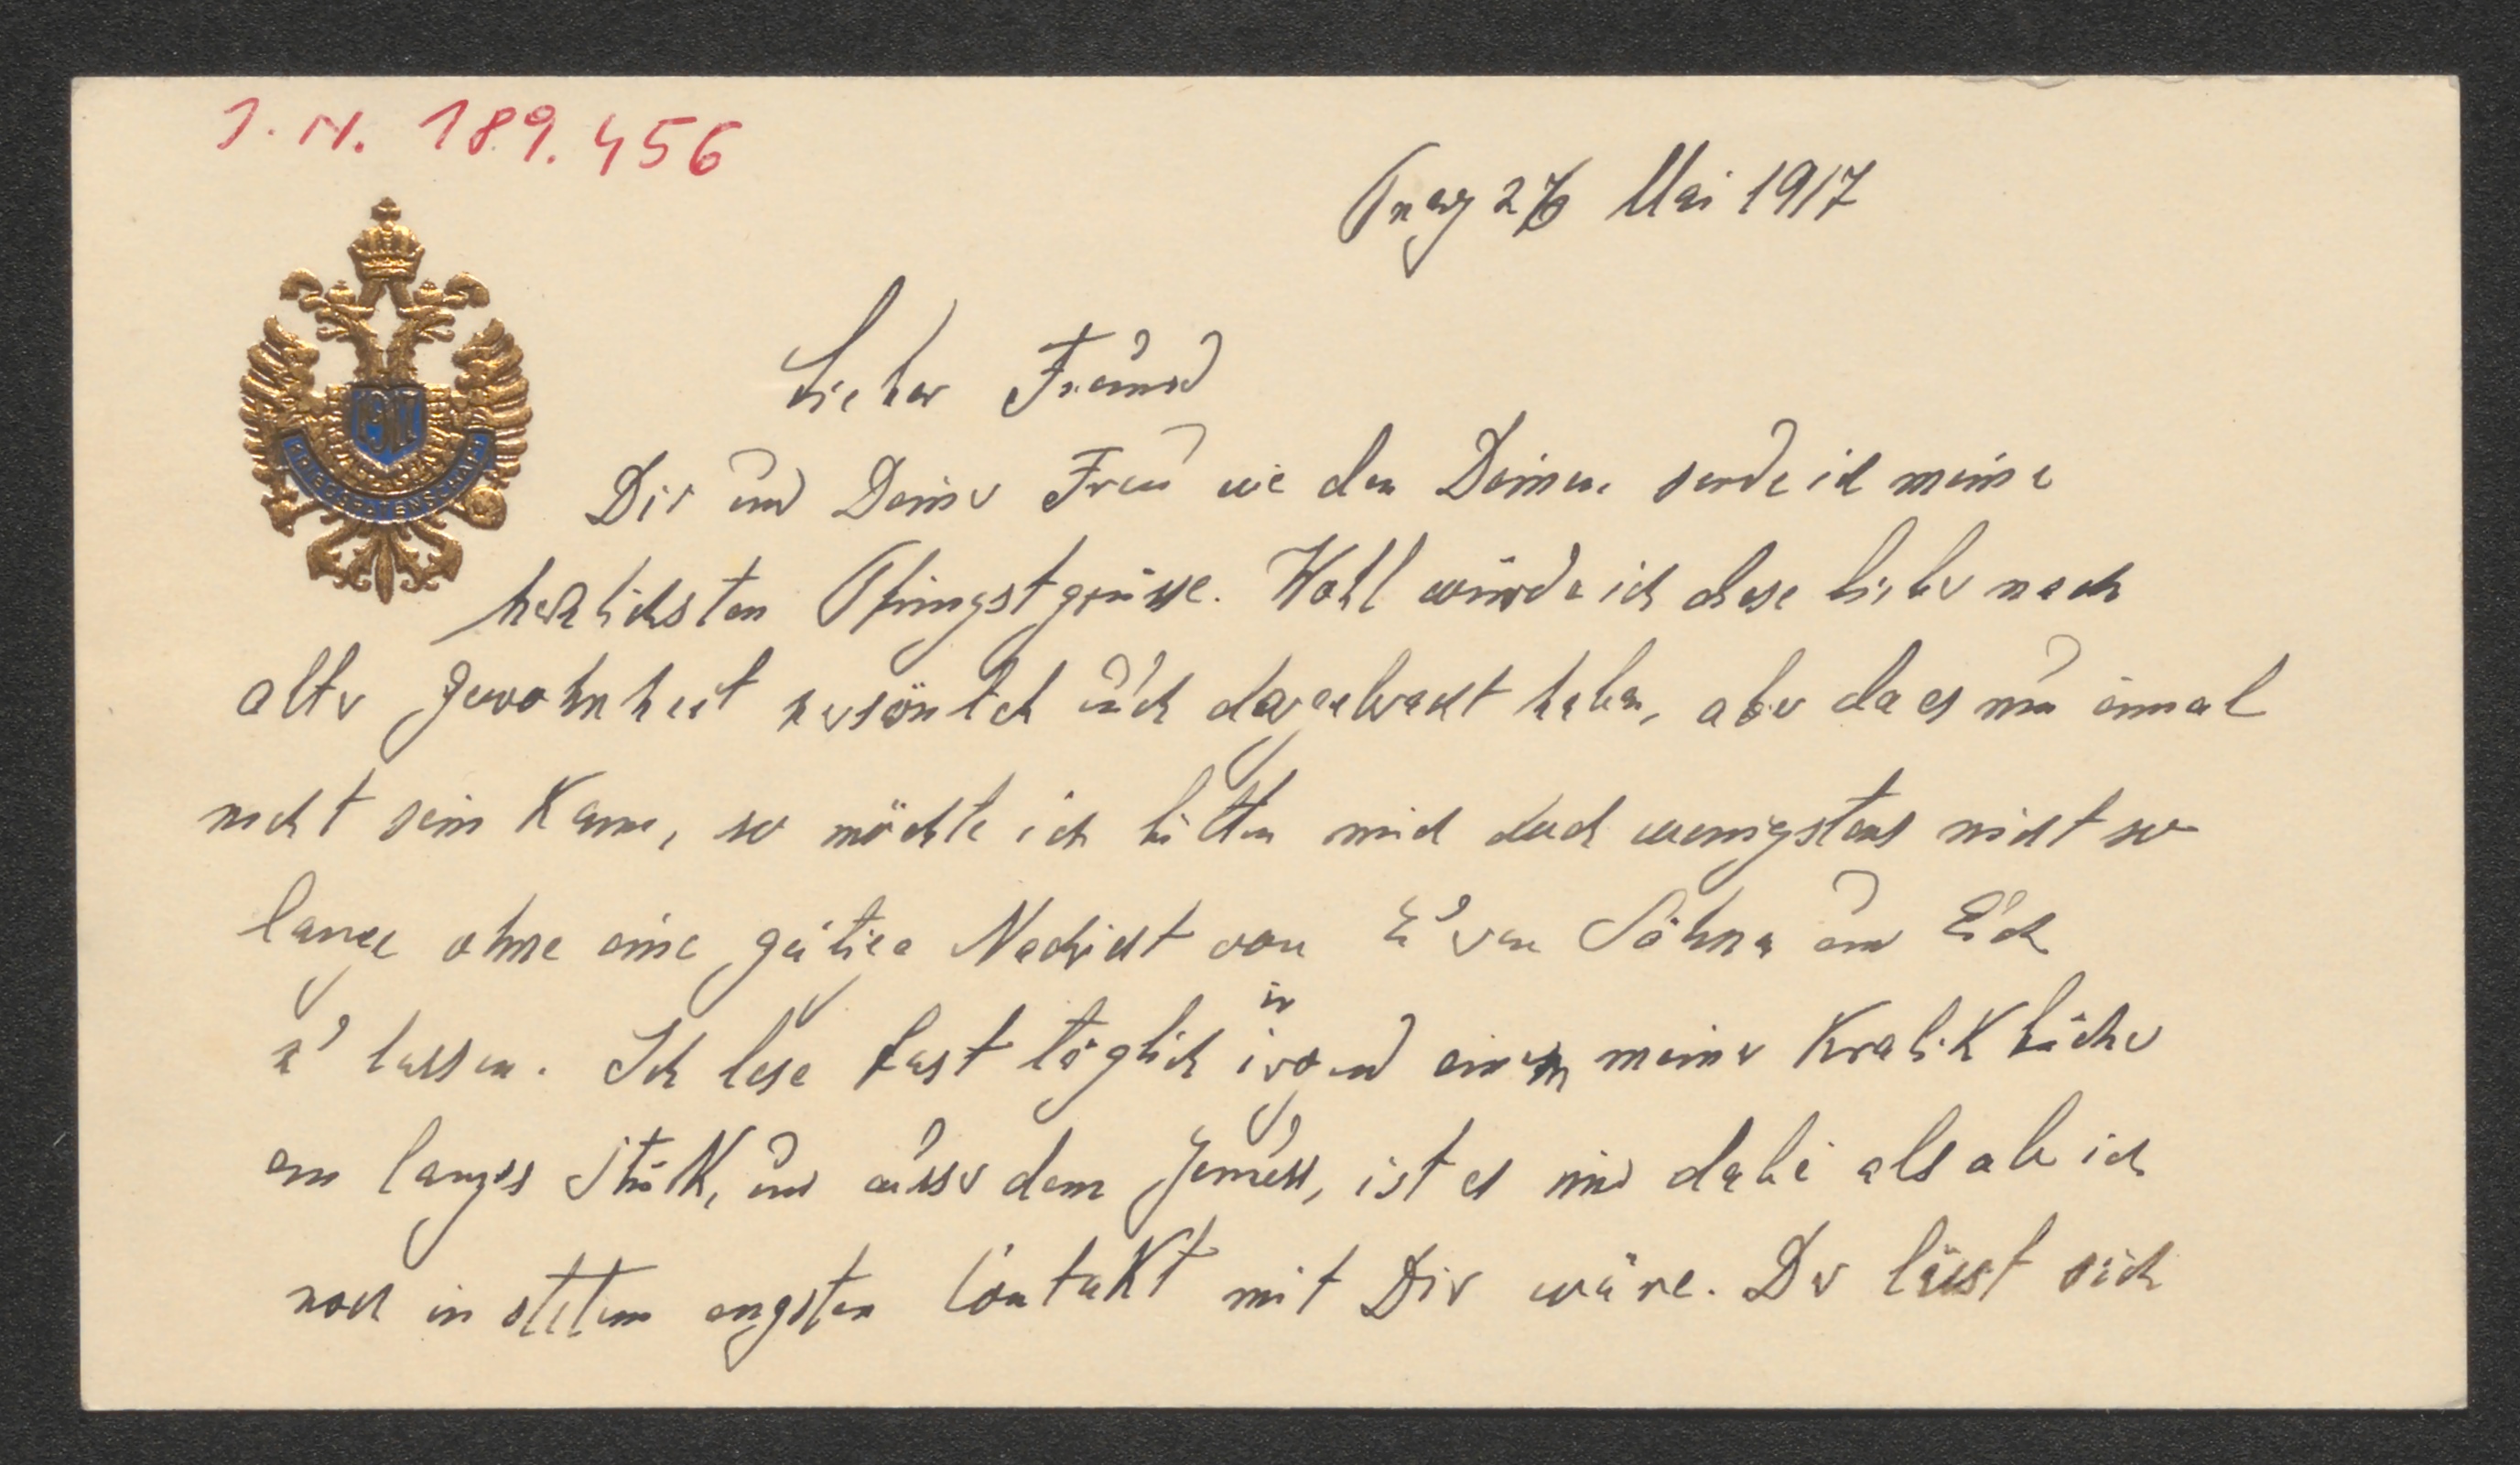 I. N. 189.456
Prag 26 Mai 1917
Lieber Freund
Dir und Deiner Frau wie den Deinen sende ich meine
herzlichsten Pfingstgrüsse. Wohl würde ich diese lieber nach
alter Gewohnheit persönlich Euch dargebracht haben, aber da es nun einmal
nicht sein kann, so möchte ich bitten mich doch wenigstens nicht so
lange ohne eine gütige Nachricht von Euren Söhnen und Euch
zu lassen. Ich lese fast täglich in irgend einem meiner Kralikbücher
ein langes Stük, und ausser dem Genuss, ist es mir dabei als ob ich
noch in stetem engsten Contakt mit Dir wäre. Da lässt sich
1917
KRIEGSPATENSCHAFT